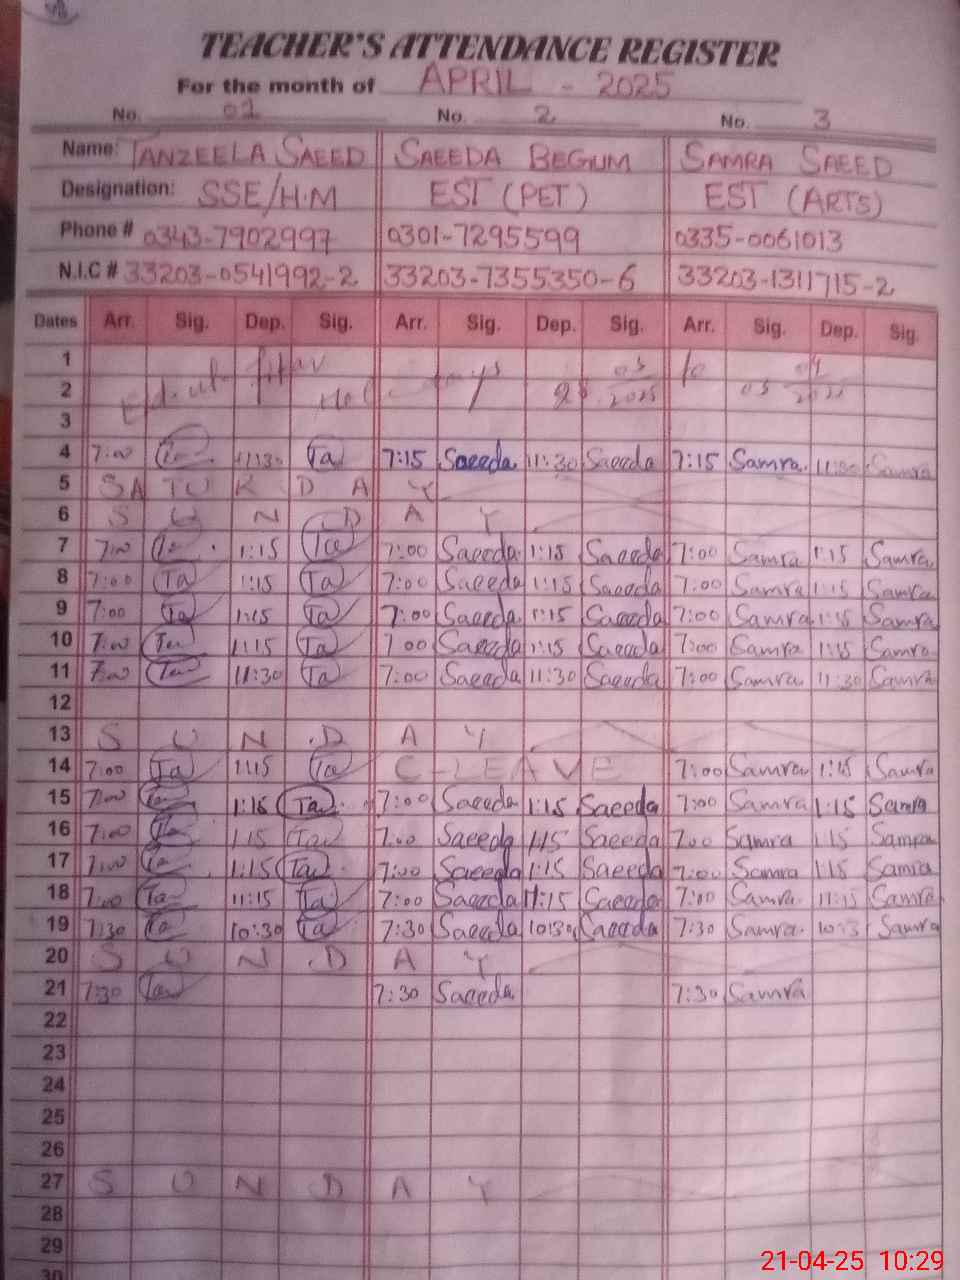 TEACHER'S ATTENDANCE REGISTER
For the month of APRIL - 2025
No. 01 No. 2 No. 3
Name: TANZEELA SAEED SAEEDA BEGUM SAMRA SAEED
Designation: SSE/H.M EST (PET) EST (ARTS)
Phone # 0343-7902997 0301-7295599 0335-0061013
N.I.C # 33203-0541992-2 33203-7355350-6 33203-1311715-2
Dates Arr. Sig. Dep. Sig. Arr. Sig. Dep. Sig. Arr. Sig. Dep. Sig.
1 03 to 04
2 2025 03
3
4 7:00 Ta 11:30 Ta 7:15 Saeeda 11:30 Saeeda 7:15 Samra 11:30 Samra
5 SATURDAY
6 SUNDAY
7 7:00 Ta 1:15 Ta 7:00 Saeeda 1:15 Saeeda 7:00 Samra 1:15 Samra
8 7:00 Ta 1:15 Ta 7:00 Saeeda 1:15 Saeeda 7:00 Samra 1:15 Samra
9 7:00 Ta 1:15 Ta 7:00 Saeeda 1:15 Saeeda 7:00 Samra 1:15 Samra
10 7:00 Ta 1:15 Ta 7 00 Saeeda 1:15 Saeeda 7:00 Samra 1:15 Samra
11 7:00 Ta 11:30 Ta 7:00 Saeeda 11:30 Saeeda 7:00 Samra 11:30 Samra
12
13 SUNDAY
14 7:00 Ta 1:15 Ta C-LEAVE 7:00 Samra 1:15 Samra
15 7:00 Ta 1:15 Ta 7:00 Saeeda 1:15 Saeeda 7:00 Samra 1:15 Samra
16 7:00 Ta 1:15 Ta 7:00 Saeeda 1:15 Saeeda 7:00 Samra 1:15 Samra
17 7:00 Ta 1:15 Ta 7:00 Saeeda 1:15 Saeeda 7:00 Samra 1:15 Samra
18 7:00 Ta 11:15 Ta 7:00 Saeeda 11:15 Saeeda 7:00 Samra 11:15 Samra
19 7:30 Ta 10:30 Ta 7:30 Saeeda 10:30 Saeeda 7:30 Samra 10:3 Samra
20 SUNDAY
21 7:30 Ta 7:30 Saeeda 7:30 Samra
22
23
24
25
26
27 SUNDAY
28
29
30
21-04-25 10:29